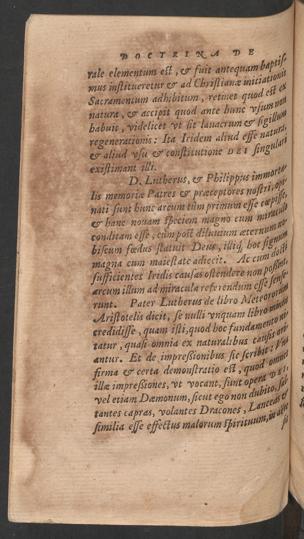 DOCTRINA DE
rale elementum est, & fuit antequam baptis-
mus institueretur & ad Christianæ initiationis
Sacramentum adhibitum, retinet quod est ex
natura, & accipit quod ante hunc vsum non
habuit, videlicet vt sit lauacrum & sigillum
regenerationis: Ita Iridem aliud esse natura,
& aliud vsu & constitutione DEI singulari
existimant illi.
D. Lutherus, & Philippus immorta-
lis memoriæ Patres & præceptores nostri, opi-
nati sunt hunc arcum tùm primum esse cœpisse,
& hanc nouam speciem magno cum miraculo
conditam esse, cùm post diluuium æternum no-
biscum fœdus statuit Deus, illiq́; hoc signum
magna cum maiestate adiecit. Ac cum docti
sufficientes Iridis causas ostendere non possent,
arcum illum ad miracula referendum esse sense-
runt. Pater Lutherus de libro Meteororum
Aristotelis dicit, se nulli vnquam libro minus
credidisse, quam isti, quod hoc fundamento ni-
tatur, quasi omnia ex naturalibus causis ori-
antur. Et de impreßionibus sic scribit:
firma & certa demonstratio est, quod omnes
illæ impreßiones, vt vocant, sunt opera DEI,
vel etiam Dæmonum, sicut ego non dubito, sal-
tantes capras, volantes Dracones, Lanceas &
similia esse effectus malorum spirituum, in aëre